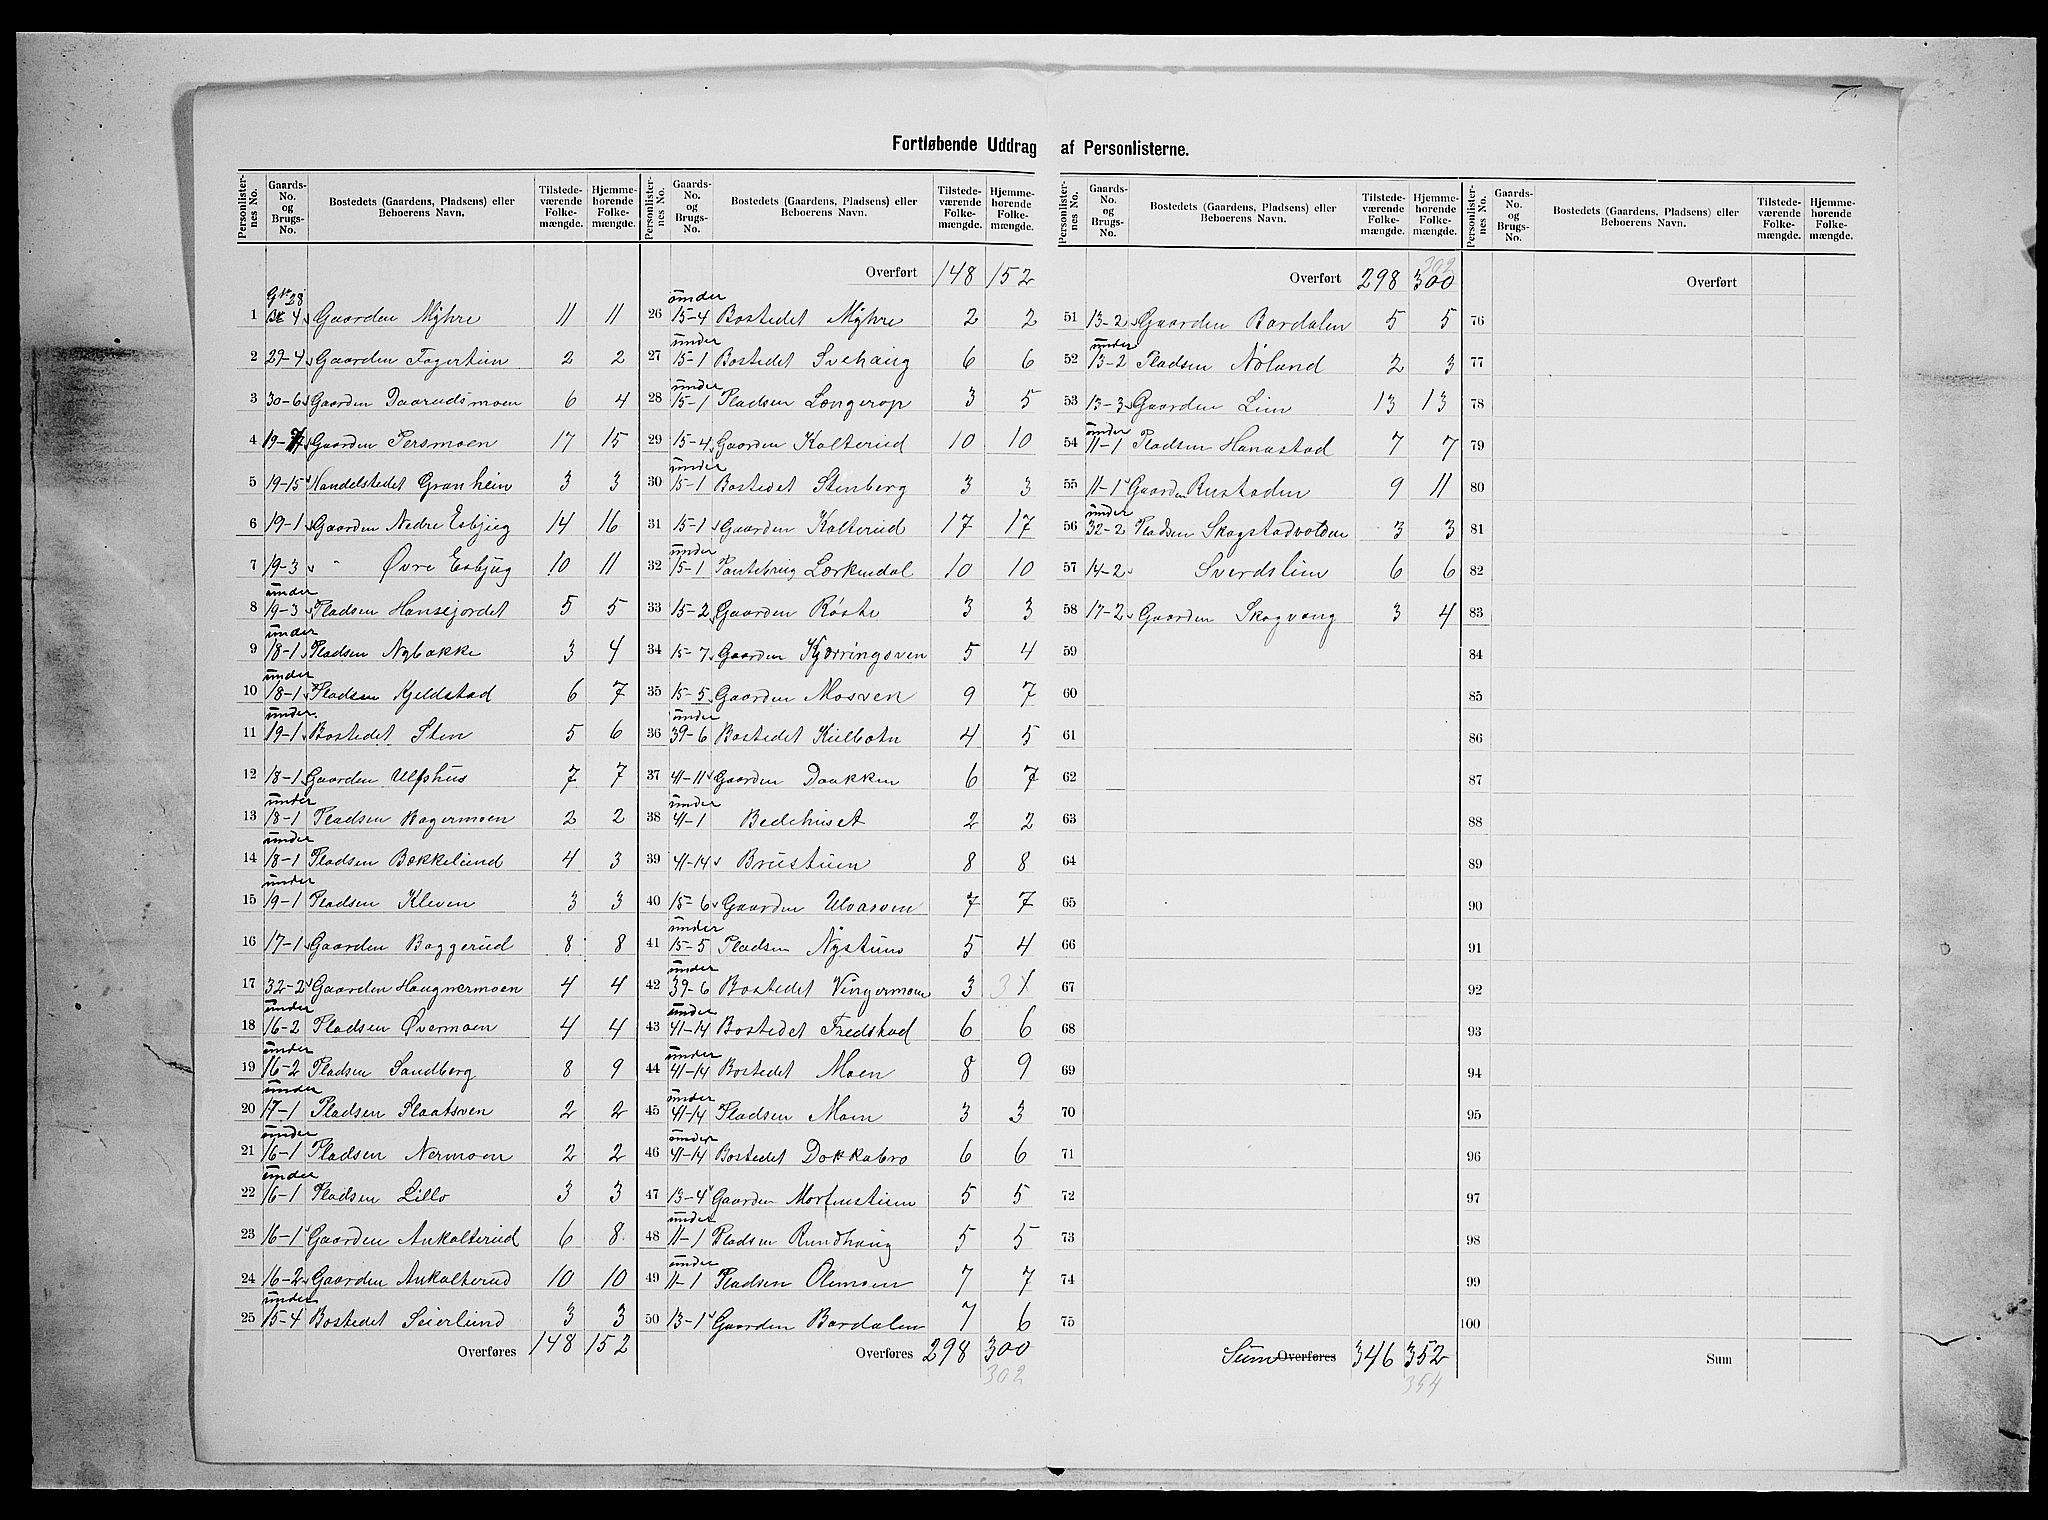 7.
Fortløbende Uddrag af Personlisterne.
Personlister-nes No. | Gaards-No. og Brugs-No. | Bostedets (Gaardens, Pladsens) eller Beboerens Navn. | Tilstede-værende Folke-mængde. | Hjemme-hørende Folke-mængde.
1 | 28 4 | Gaarden Myhre | 11 | 11
2 | 29-4 | Gaarden Fagertun | 2 | 2
3 | 30-6 | Gaarden Daarudsmoen | 6 | 4
4 | 19- | Gaarden Persmoen | 17 | 15
5 | 19-15 | Handelstedet Granheim | 3 | 3
6 | 19-1 | Gaarden Nedre Esbjug | 14 | 16
7 | 19-3 | " Øvre Esbjug | 10 | 11
8 | under 19-3 | Pladsen Hansejordet | 5 | 5
9 | under 18-1 | Pladsen Nybakke | 3 | 4
10 | under 18-1 | Pladsen Kjeldstad | 6 | 7
11 | under 19-1 | Bostedet Sten | 5 | 6
12 | 18-1 | Gaarden Ulfshus | 7 | 7
13 | under 18-1 | Pladsen Bagermoen | 2 | 2
14 | under 18-1 | Pladsen Bakkelund | 4 | 3
15 | under 19-1 | Pladsen Kleven | 3 | 3
16 | 17-1 | Gaarden Baggerud | 8 | 8
17 | 32-2 | Gaarden Haugnermoen | 4 | 4
18 | under 16-2 | Pladsen Øvermoen | 4 | 4
19 | under 16-2 | Pladsen Sandberg | 8 | 9
20 | under 17-1 | Pladsen Slaatsven | 2 | 2
21 | under 16-1 | Pladsen Nermoen | 2 | 2
22 | under 16-1 | Pladsen Lillo | 3 | 3
23 | 16-1 | Gaarden Ankalterud | 6 | 8
24 | 16-2 | Gaarden Ankalterud | 10 | 10
25 | under 15-4 | Bostedet Seierlund | 3 | 3
Overføres | 148 | 152
Personlister-nes No. | Gaards-No. og Brugs-No. | Bostedets (Gaardens, Pladsens) eller Beboerens Navn. | Tilstede-værende Folke-mængde. | Hjemme-hørende Folke-mængde.
Overført | 148 | 152
26 | under 15-4 | Bostedet Myhre | 2 | 2
27 | under 15-1 | Bostedet Svehaug | 6 | 6
28 | under 15-1 | Pladsen Længerop | 3 | 5
29 | 15-4 | Gaarden Kalterud | 10 | 10
30 | under 15-1 | Bostedet Stenberg | 3 | 3
31 | 15-1 | Gaarden Kalterud | 17 | 17
32 | under 15-1 | Pantebrug Lærkendal | 10 | 10
33 | 15-2 | Gaarden Røste | 3 | 3
34 | 15-7 | Gaarden Kjærringsven | 5 | 4
35 | 15-5 | Gaarden Mosven | 9 | 7
36 | under 39-6 | Bostedet Kulbotn | 4 | 5
37 | 41-11 | Gaarden Daakken | 6 | 7
38 | under 41-1 | Bedehuset | 2 | 2
39 | 41-14 | Brustuen | 8 | 8
40 | 15-6 | Gaarden Ulvasven | 7 | 7
41 | under 15-5 | Pladsen Nystuno | 5 | 4
42 | under 39-6 | Bostedet Vingermoen | 3 | 3 1
43 | under 41-14 | Bostedet Fredstad | 6 | 6
44 | under 41-14 | Bostedet Moen | 8 | 9
45 | under 41-14 | Pladsen Moen | 3 | 3
46 | under 41-14 | Bostedet Dokkabro | 6 | 6
47 | 13-4 | Gaarden Mortenstuen | 5 | 5
48 | under 11-1 | Pladsen Rundhaug | 5 | 5
49 | under 11-1 | Pladsen Olemoen | 7 | 7
50 | 13-1 | Gaarden Bardalen | 7 | 6
Overføres | 298 | 300
302
Personlister-nes No. | Gaards-No. og Brugs-No. | Bostedets (Gaardens, Pladsens) eller Beboerens Navn. | Tilstede-værende Folke-mængde. | Hjemme-hørende Folke-mængde.
302
Overført | 298 | 300
51 | 13-2 | Gaarden Bardalen | 5 | 5
52 | under 13-2 | Pladsen Nøland | 2 | 3
53 | 13-3 | Gaarden Lien | 13 | 13
54 | under 11-1 | Pladsen Hanastad | 7 | 7
55 | 11-1 | Gaarden Rustaden | 9 | 11
56 | under 32-2 | Pladsen Skogstadvolden | 3 | 3
57 | 14-2 | Sverdslien | 6 | 6
58 | 17-2 | Gaarden Skogvang | 3 | 4
59
60
61
62
63
64
65
66
67
68
69
70
71
72
73
74
75
Sum Overføres | 346 | 352
354
Personlister-nes No. | Gaards-No. og Brugs-No. | Bostedets (Gaardens, Pladsens) eller Beboerens Navn. | Tilstede-værende Folke-mængde. | Hjemme-hørende Folke-mængde.
Overført
76
77
78
79
80
81
82
83
84
85
86
87
88
89
90
91
92
93
94
95
96
97
98
99
100
Sum